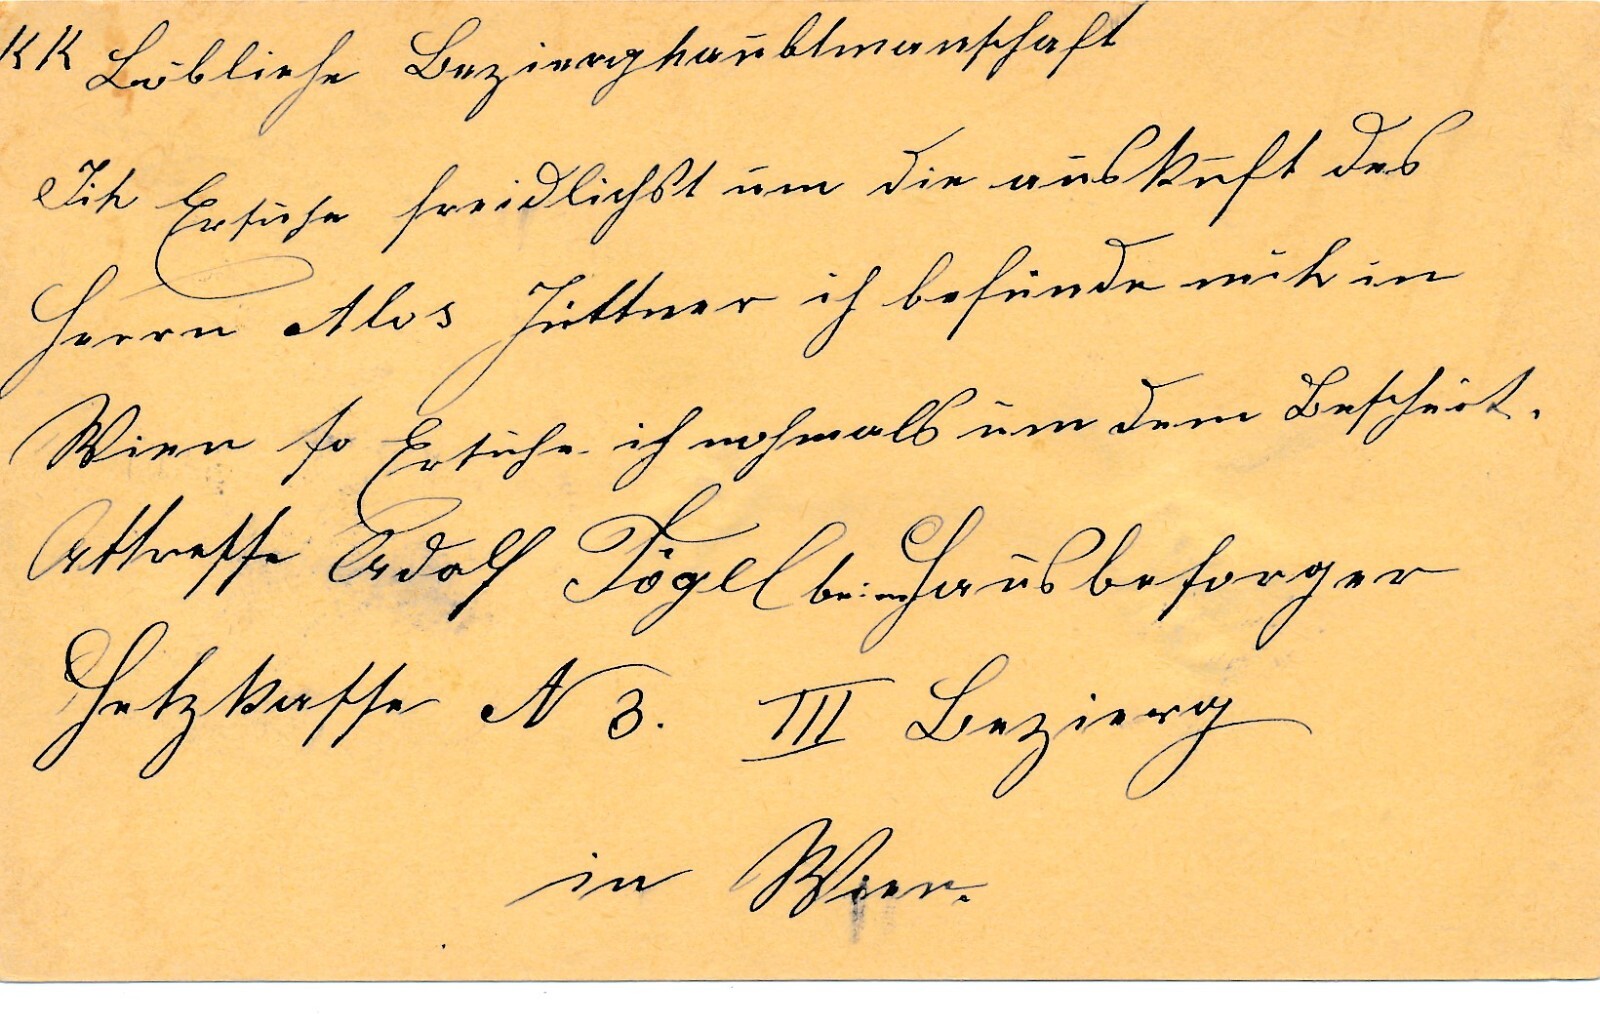 KK Löbliche Bezierghaubtmanschaft
Ich Ersuche freidlichst um die auskuft des
Herrn Alos Jüttner ich befünde mich in
Wien so Ersuche ich nochmals um dem Bescheit.
Attresse Adolf Tögel beim Hausbesorger
Hetzkasse N 3. III Bezierg
in Wien.